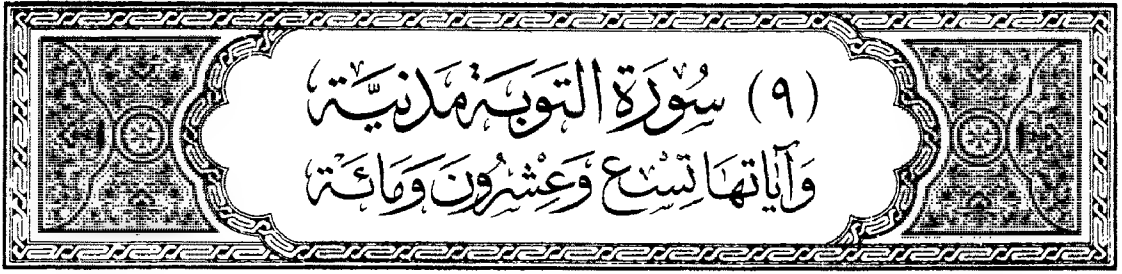 (٩) سُورَة التوبَة مَدنيَّة
وَآيَاتهَا تِسْع وَعِشْرُونَ وَمَائَة